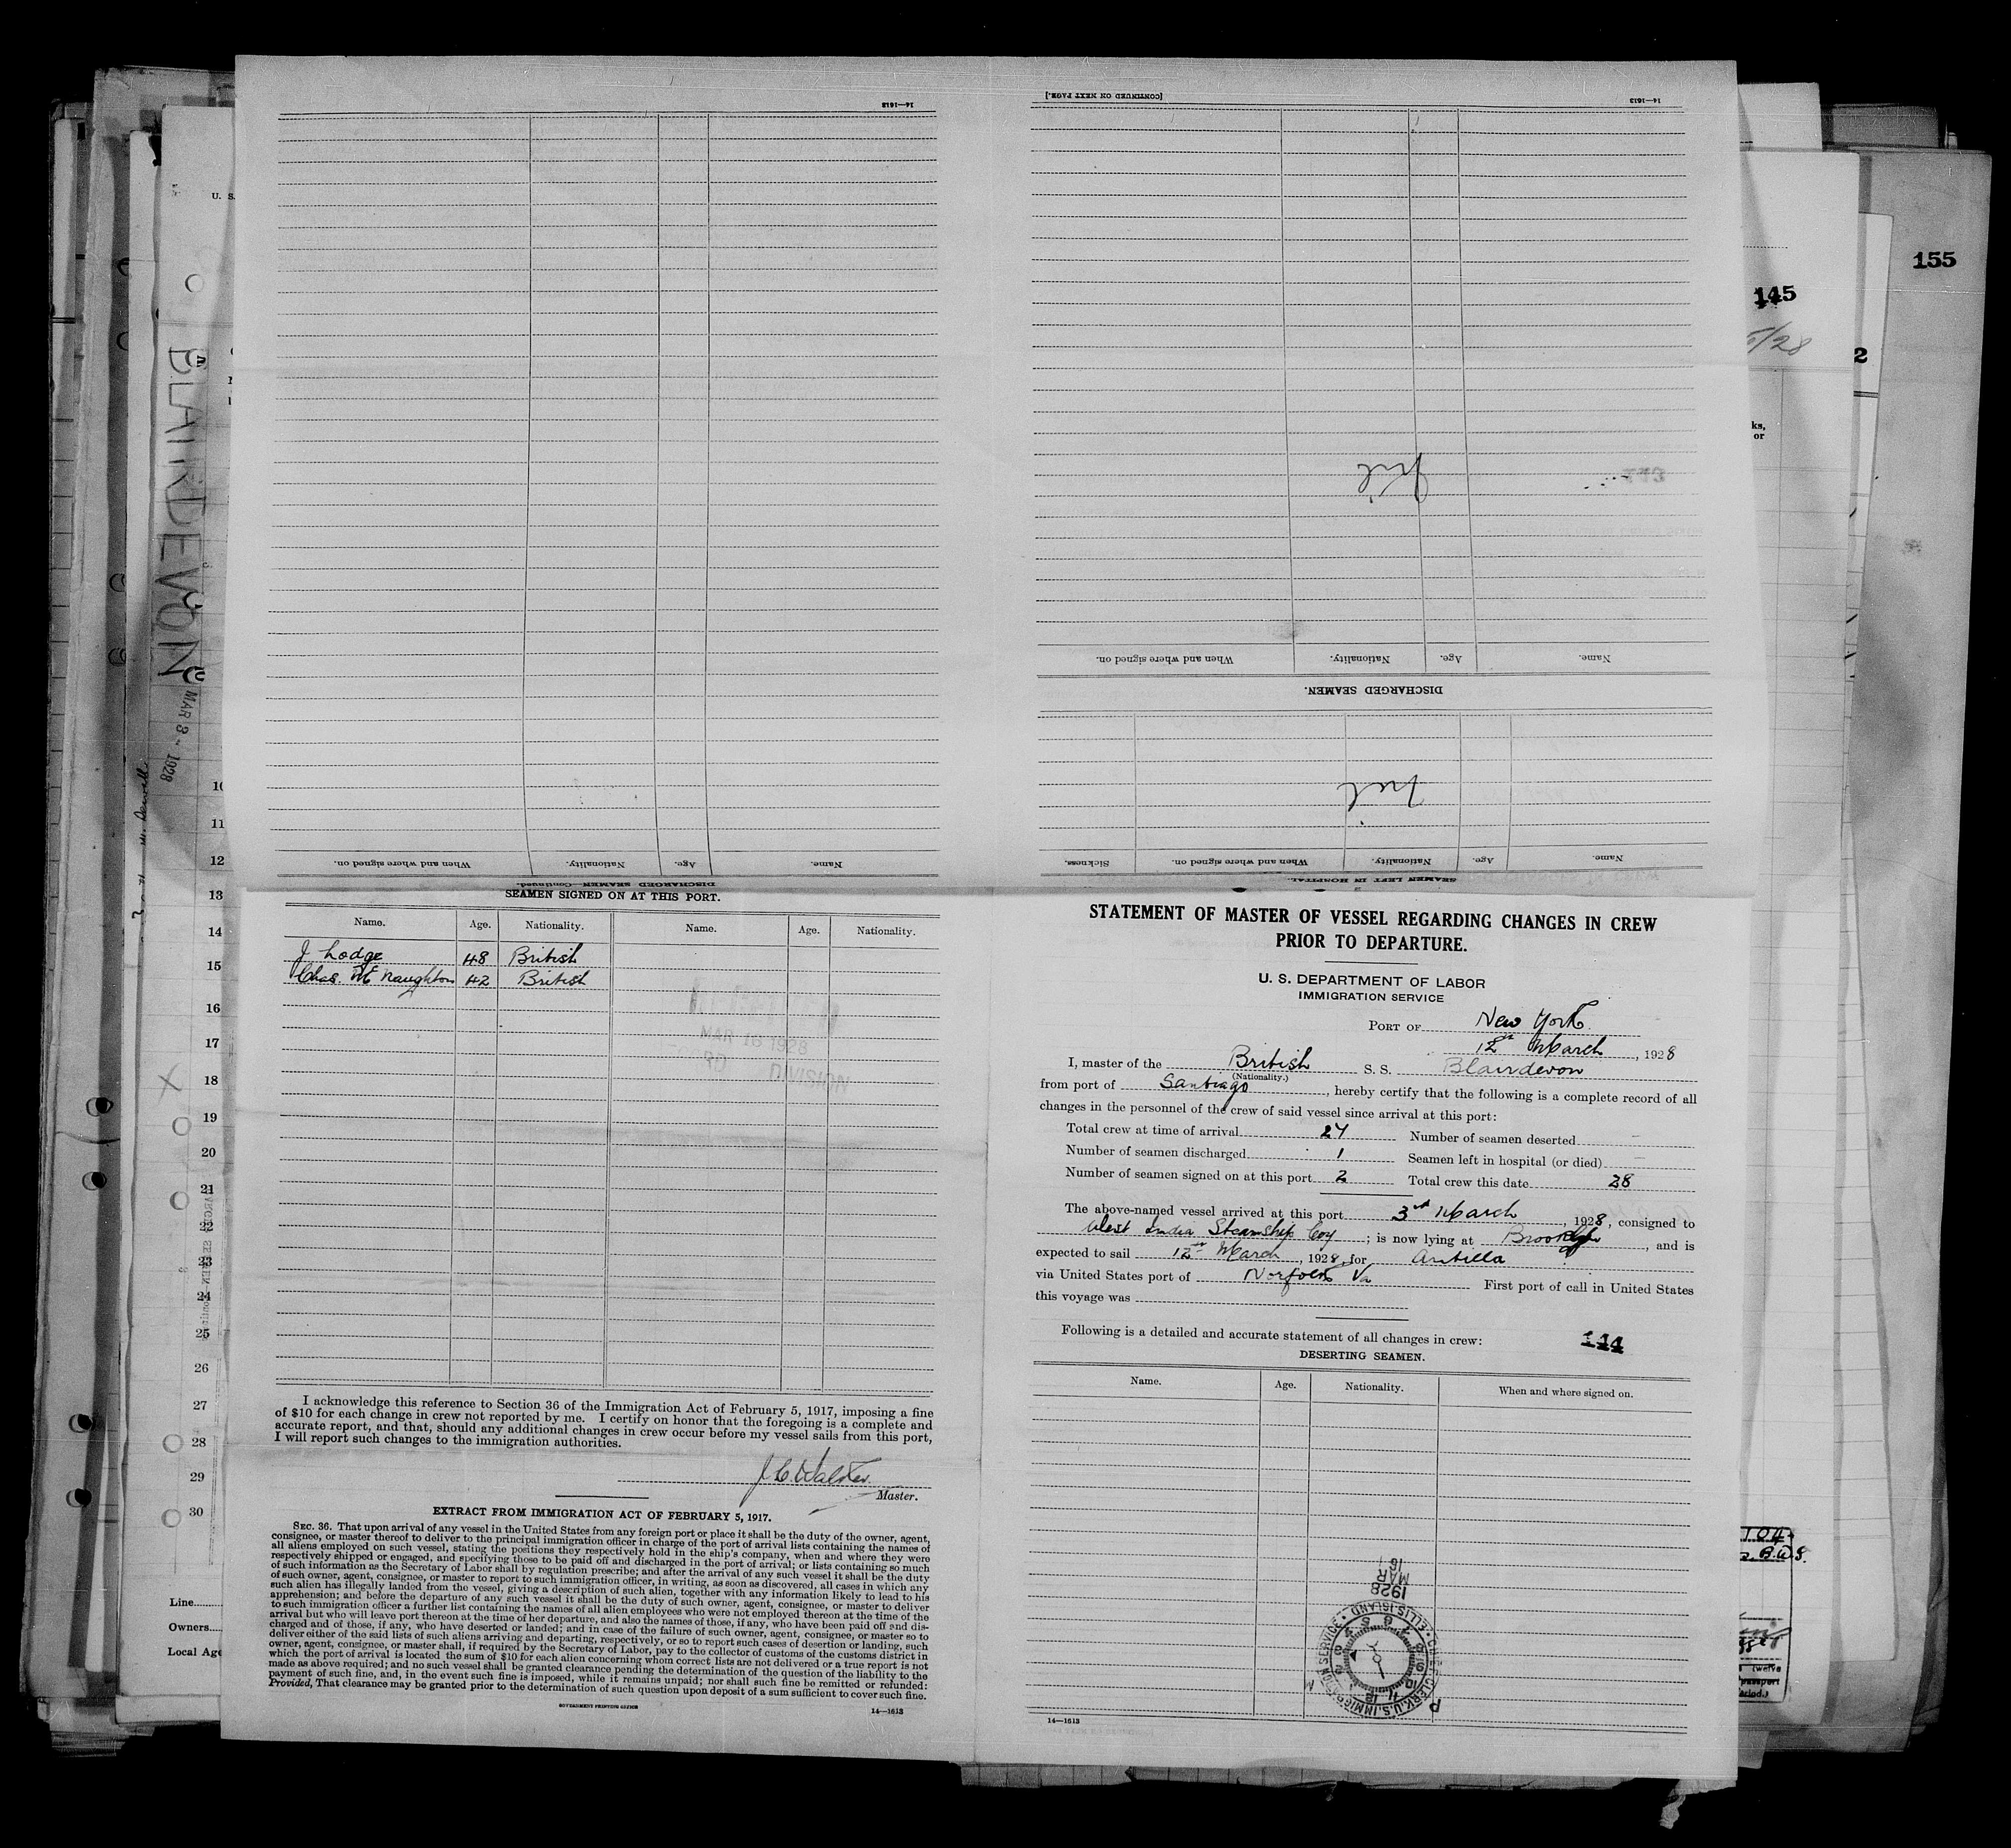 14—1613
DISCHARGED SEAMEN—Continued.
Name. Age. Nationality. When and where signed on.
[CONTINUED ON NEXT PAGE.]
14—1613
Nil
DISCHARGED SEAMEN.
Name. Age. Nationality. When and where signed on.
SEAMEN LEFT IN HOSPITAL.
Name. Age. Nationality. When and where signed on. Sickness.
Nil
SEAMEN SIGNED ON AT THIS PORT.
Name. Age. Nationality. Name. Age. Nationality.
J Lodge 48 British
Chas. Mc Naughton 42 British
MAR 16 1928
DIVISION
I acknowledge this reference to Section 36 of the Immigration Act of February 5, 1917, imposing a fine
of $10 for each change in crew not reported by me. I certify on honor that the foregoing is a complete and
accurate report, and that, should any additional changes in crew occur before my vessel sails from this port,
I will report such changes to the immigration authorities.
J. C. Walker.
Master.
EXTRACT FROM IMMIGRATION ACT OF FEBRUARY 5, 1917.
SEC. 36. That upon arrival of any vessel in the United States from any foreign port or place it shall be the duty of the owner, agent,
consignee, or master thereof to deliver to the principal immigration officer in charge of the port of arrival lists containing the names of
all aliens employed on such vessel, stating the positions they respectively hold in the ship's company, when and where they were
respectively shipped or engaged, and specifying those to be paid off and discharged in the port of arrival; or lists containing so much
of such information as the Secretary of Labor shall by regulation prescribe; and after the arrival of any such vessel it shall be the duty
of such owner, agent, consignee, or master to report to such immigration officer, in writing, as soon as discovered, all cases in which any
such alien has illegally landed from the vessel, giving a description of such alien, together with any information likely to lead to his
apprehension; and before the departure of any such vessel it shall be the duty of such owner, agent, consignee, or master to deliver
to such immigration officer a further list containing the names of all alien employees who were not employed thereon at the time of the
arrival but who will leave port thereon at the time of her departure, and also the names of those, if any, who have been paid off and dis-
charged and of those, if any, who have deserted or landed; and in case of the failure of such owner, agent, consignee, or master so to
deliver either of the said lists of such aliens arriving and departing, respectively, or so to report such cases of desertion or landing, such
owner, agent, consignee, or master, shall, if required by the Secretary of Labor, pay to the collector of customs of the customs district in
which the port of arrival is located the sum of $10 for each alien concerning whom correct lists are not delivered or a true report is not
made as above required; and no such vessel shall be granted clearance pending the determination of the question of the liability to the
payment of such fine, and, in the event such fine is imposed, while it remains unpaid; nor shall such fine be remitted or refunded:
Provided, That clearance may be granted prior to the determination of such question upon deposit of a sum sufficient to cover such fine.
GOVERNMENT PRINTING OFFICE
14—1613
STATEMENT OF MASTER OF VESSEL REGARDING CHANGES IN CREW
PRIOR TO DEPARTURE.
U. S. DEPARTMENT OF LABOR
IMMIGRATION SERVICE
PORT OF New York.
12th March, 1928
I, master of the British S. S. Blairdevon
(Nationality.)
from port of Santiago, hereby certify that the following is a complete record of all
changes in the personnel of the crew of said vessel since arrival at this port:
Total crew at time of arrival 27 Number of seamen deserted —
Number of seamen discharged 1 Seamen left in hospital (or died) —
Number of seamen signed on at this port 2 Total crew this date 28
The above-named vessel arrived at this port 3rd March, 1928, consigned to
West India Steamship Coy; is now lying at Brooklyn, and is
expected to sail 12th March, 1928, for Antilla
via United States port of Norfolk Va First port of call in United States
this voyage was
Following is a detailed and accurate statement of all changes in crew:
144
DESERTING SEAMEN.
Name. Age. Nationality. When and where signed on.
MAR 16
1928
CHIEF CLERK, U.S. IMMIGRATION SERVICE • ELLIS ISLAND •
14—1613
BLAIRDEVON
MAR 3 - 1928
U. S.
10
11
12
13
14
15
16
17
18
19
20
21
22
23
24
25
26
27
28
29
30
Line
Owners
Local Age
155
145
5/28
2
ks,
or
104
B.W.S.
twelve
passport